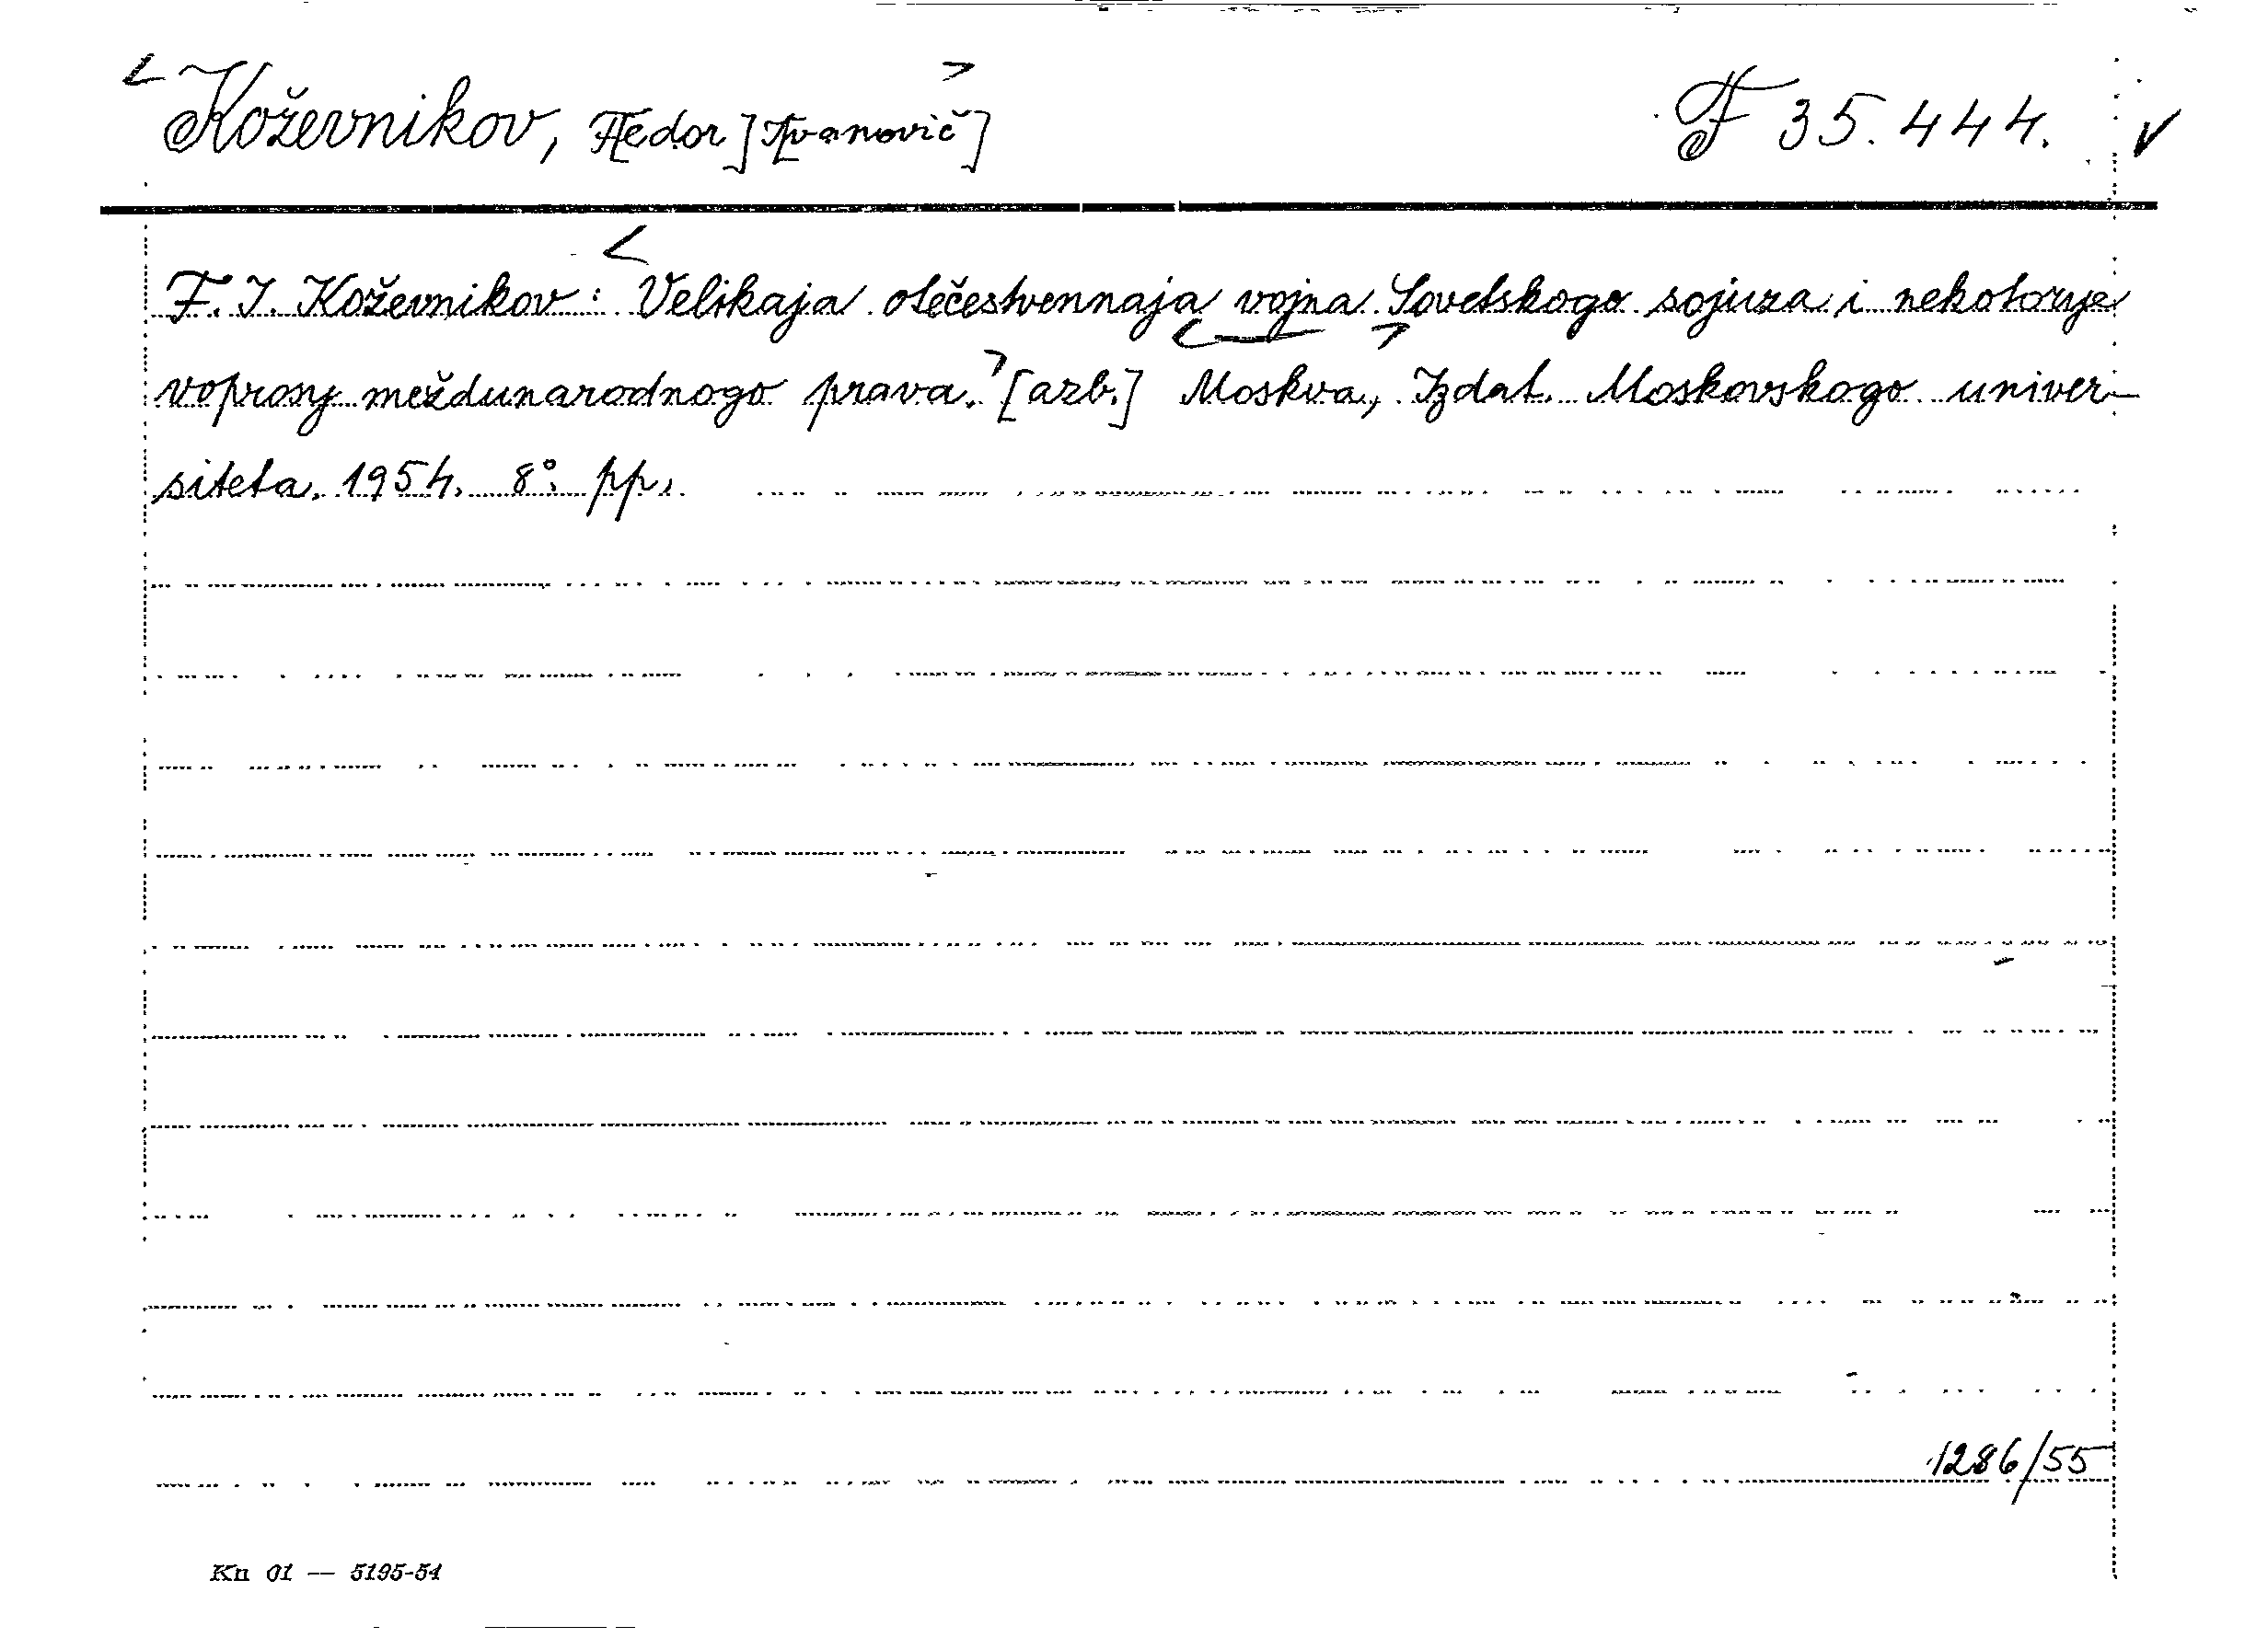 <Koževnikov, F[edor] I[vanovič]> F 35.444. ✓
F. I. Koževnikov: <Velikaja otečestvennaja vojna Sovetskogo sojuza i nekotorye
voprosy meždunarodnogo prava.> [azb.] <Moskva,> Izdat. Moskovskogo univer-
siteta. 1954. 8°. pp.
1286/55
Kn 01 — 5195-54